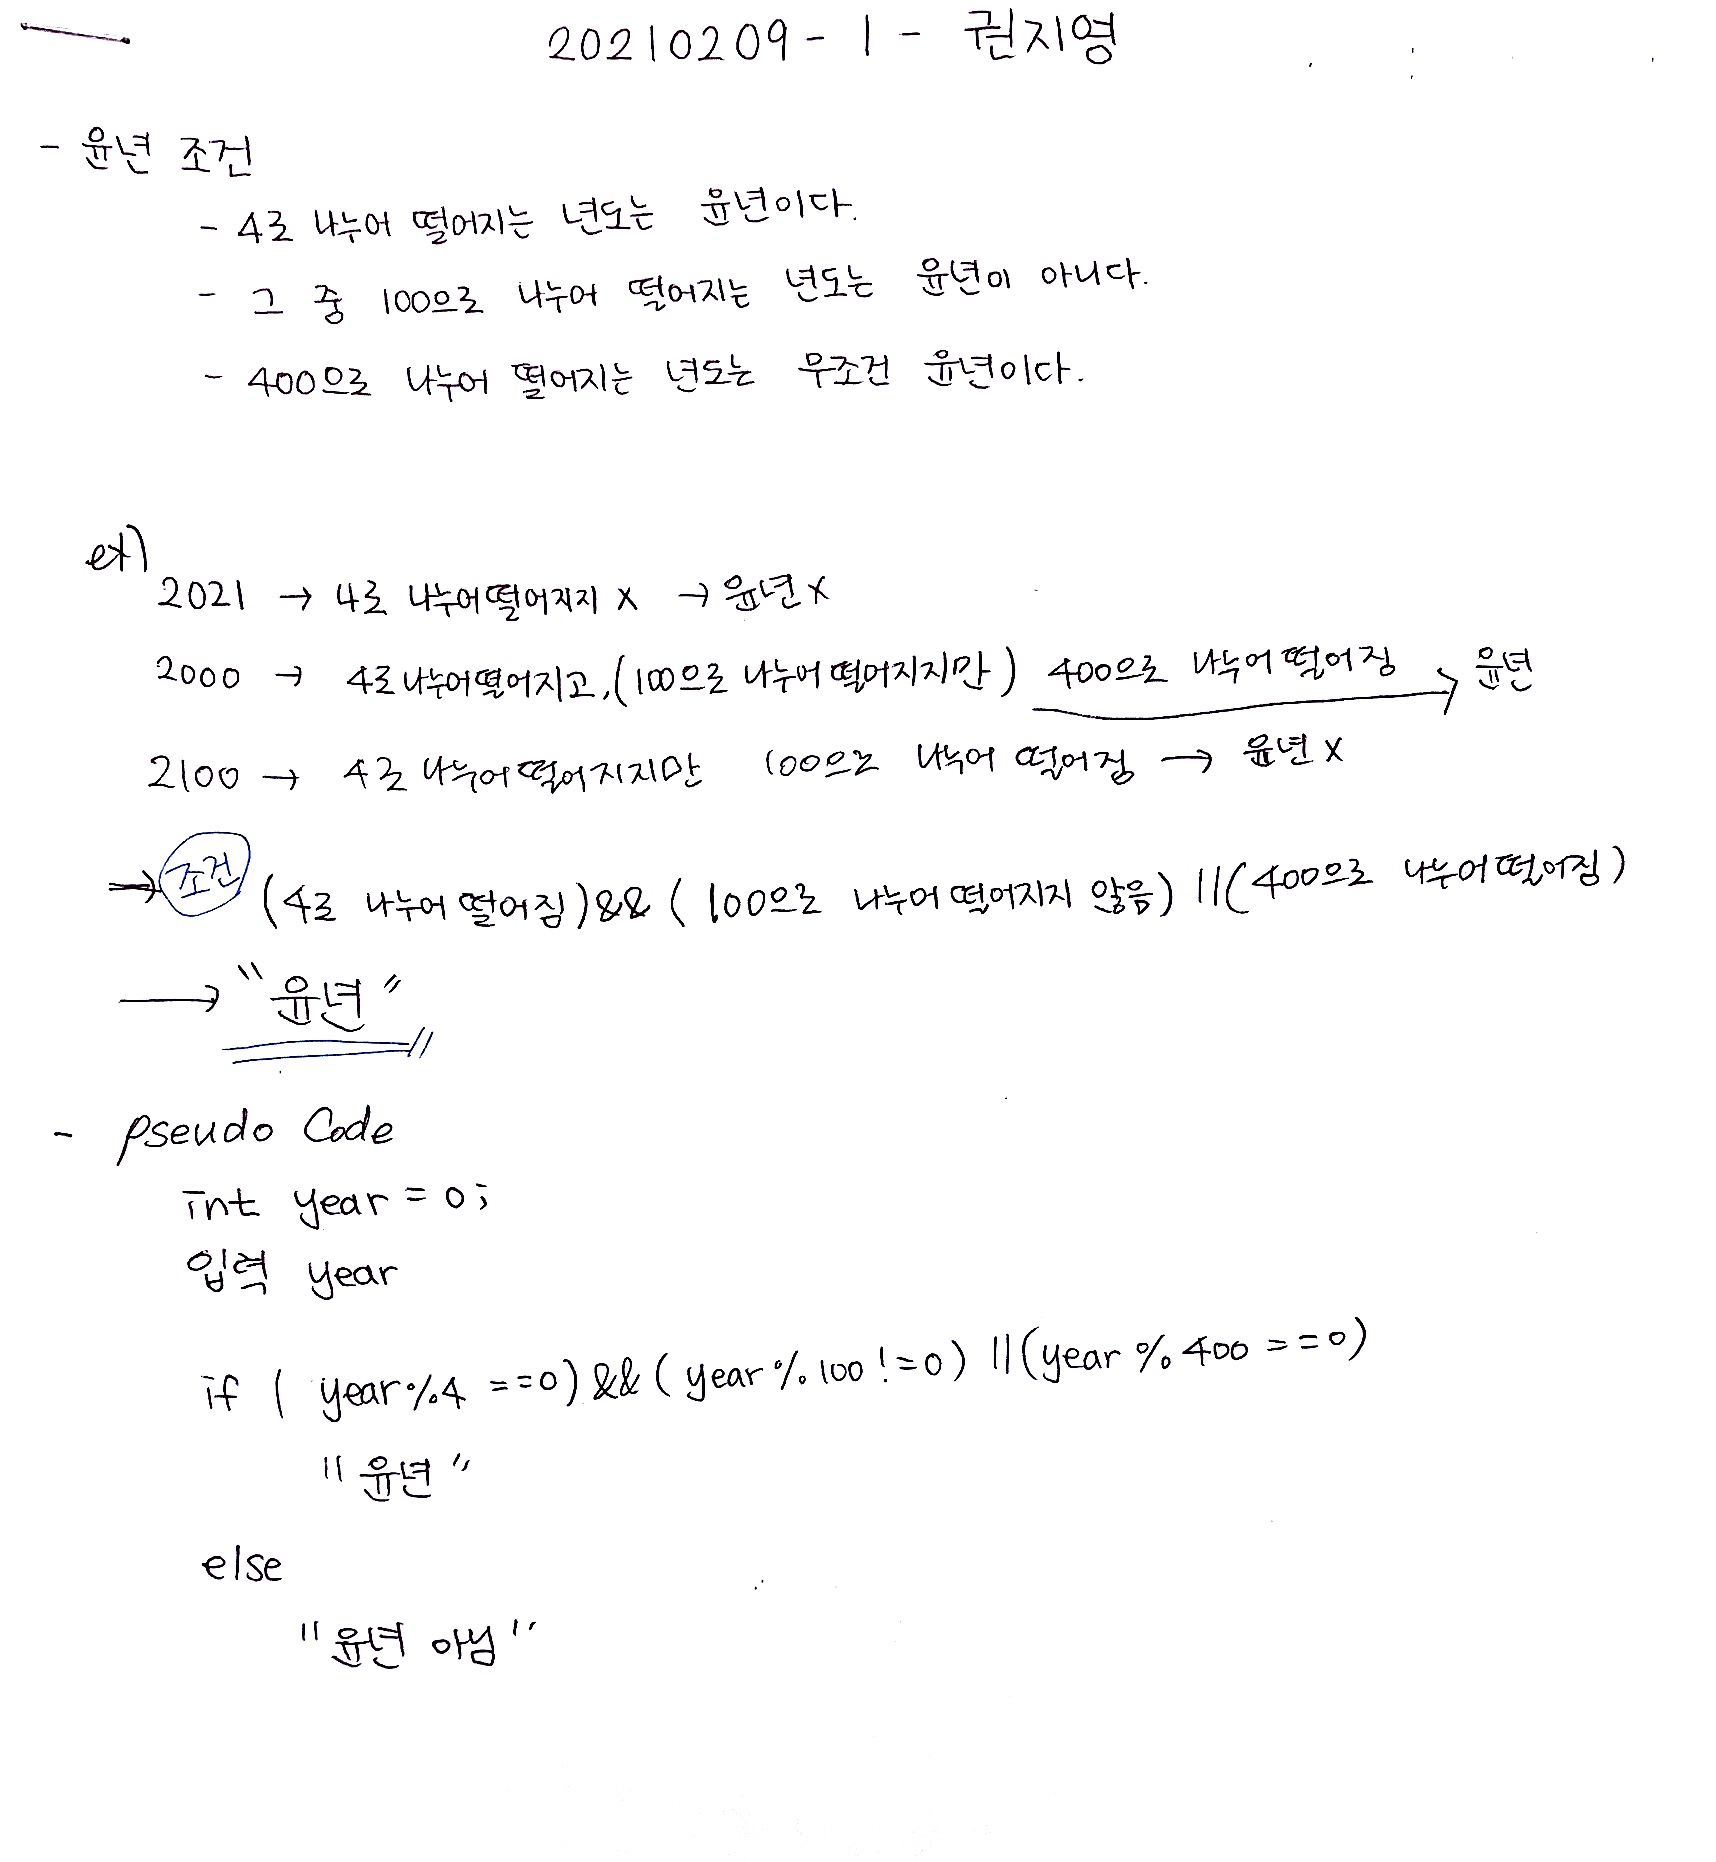 20210209 - 1 - 권지영
- 윤년 조건
- 4로 나누어 떨어지는 년도는 윤년이다.
- 그 중 100으로 나누어 떨어지는 년도는 윤년이 아니다.
- 400으로 나누어 떨어지는 년도는 무조건 윤년이다.
ex)
2021 → 4로 나누어떨어지지 x → 윤년 x
2000 → 4로 나누어떨어지고, (100으로 나누어떨어지지만) 400으로 나누어 떨어짐 → 윤년
2100 → 4로 나누어떨어지지만 100으로 나누어 떨어짐 → 윤년 x
→ 조건 (4로 나누어 떨어짐) && (100으로 나누어떨어지지 않음) || (400으로 나누어떨어짐)
→ "윤년"
- pseudo Code
int year = 0;
입력 year
if ( year%4 ==0) && ( year % 100 !=0) || (year % 400 ==0)
"윤년"
else
"윤년 아님"